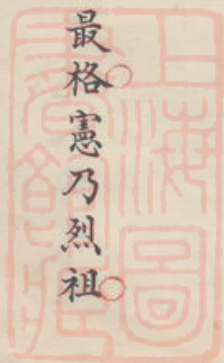 最格。憲乃烈祖。
上海圖
書館藏